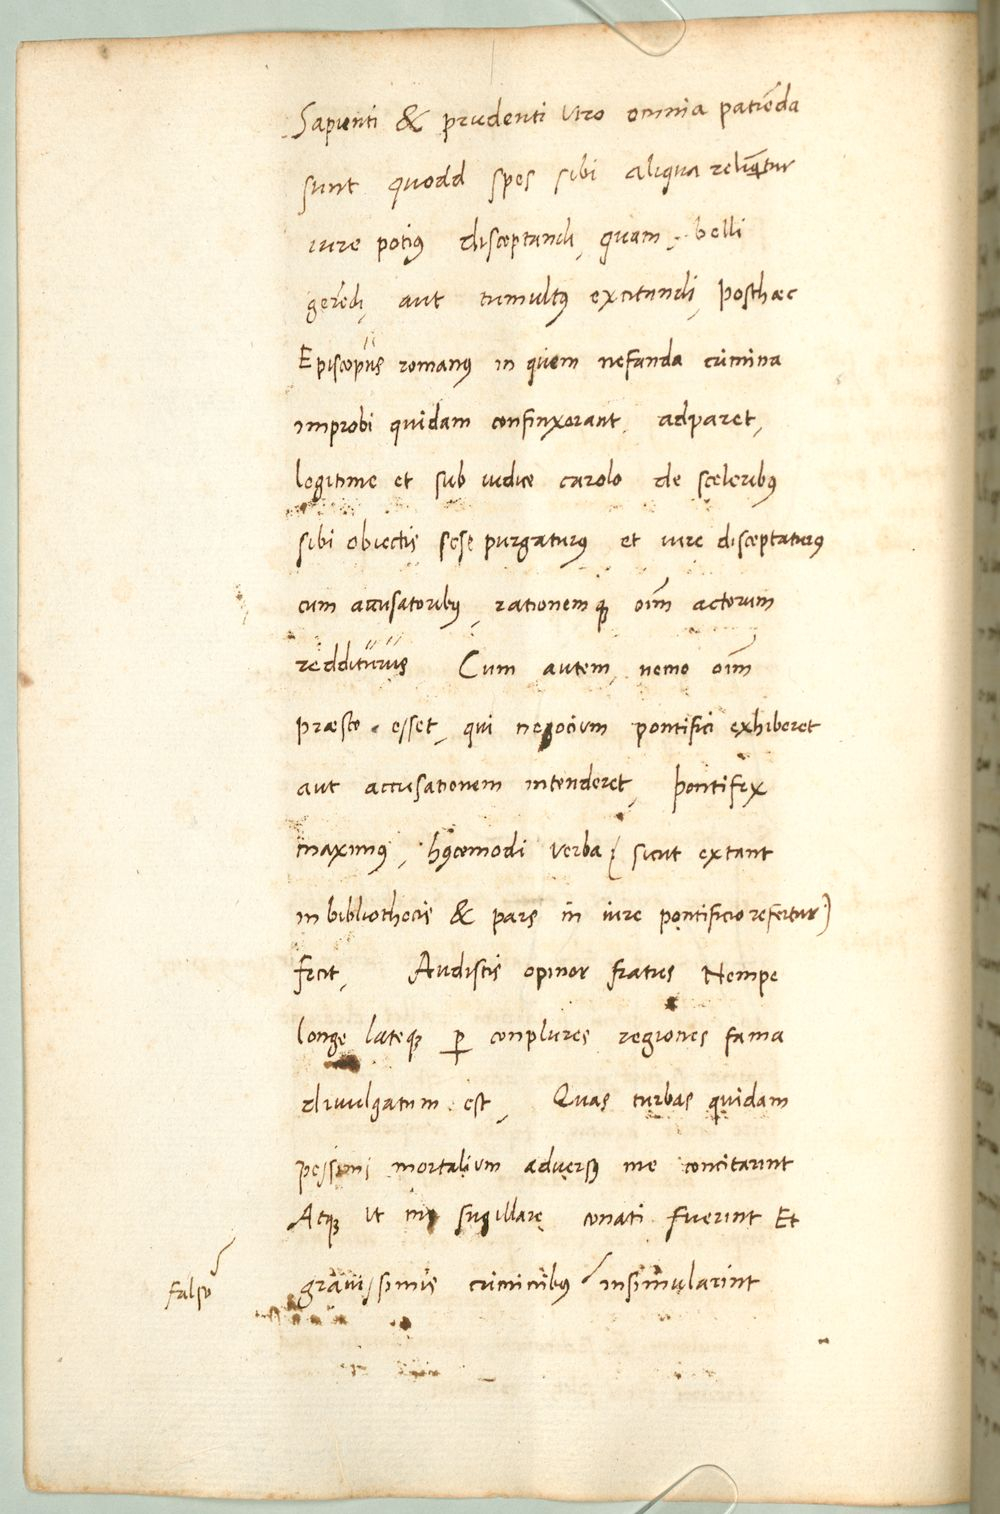 Sapienti & prudenti viro omnia patieda
sunt quodd spes sibi aliqua reliquatur
iure potius disceptandi, quam belli
geredi, aut tumultus excitandi, posthaec
Episcopus romanus in quem nefanda crimina
improbi quidam confinxerant, adparet,
legitime et sub iudice carolo de sceleribus
sibi obiectis sese purgaturus et iure disceptaturus
cum accusatoribus, rationemque oim actorum
redditurus Cum autem, nemo oim
præsto esset, qui negocium pontifici exhiberet
aut accusationem intenderet, pontifex
maximus, huiuscemodi verba (sicut extant
in bibliothecis & pars in iure pontificio refertur)
fecit, Audistis opinor fratres Nempe
longe lateque per conplures regiones fama
divulgatum est, Quas turbas quidam
pessimi mortalium adversus me concitarint
Atque ut me sugillare conati fuerint Et
gravissimis criminibus insimularint
falso